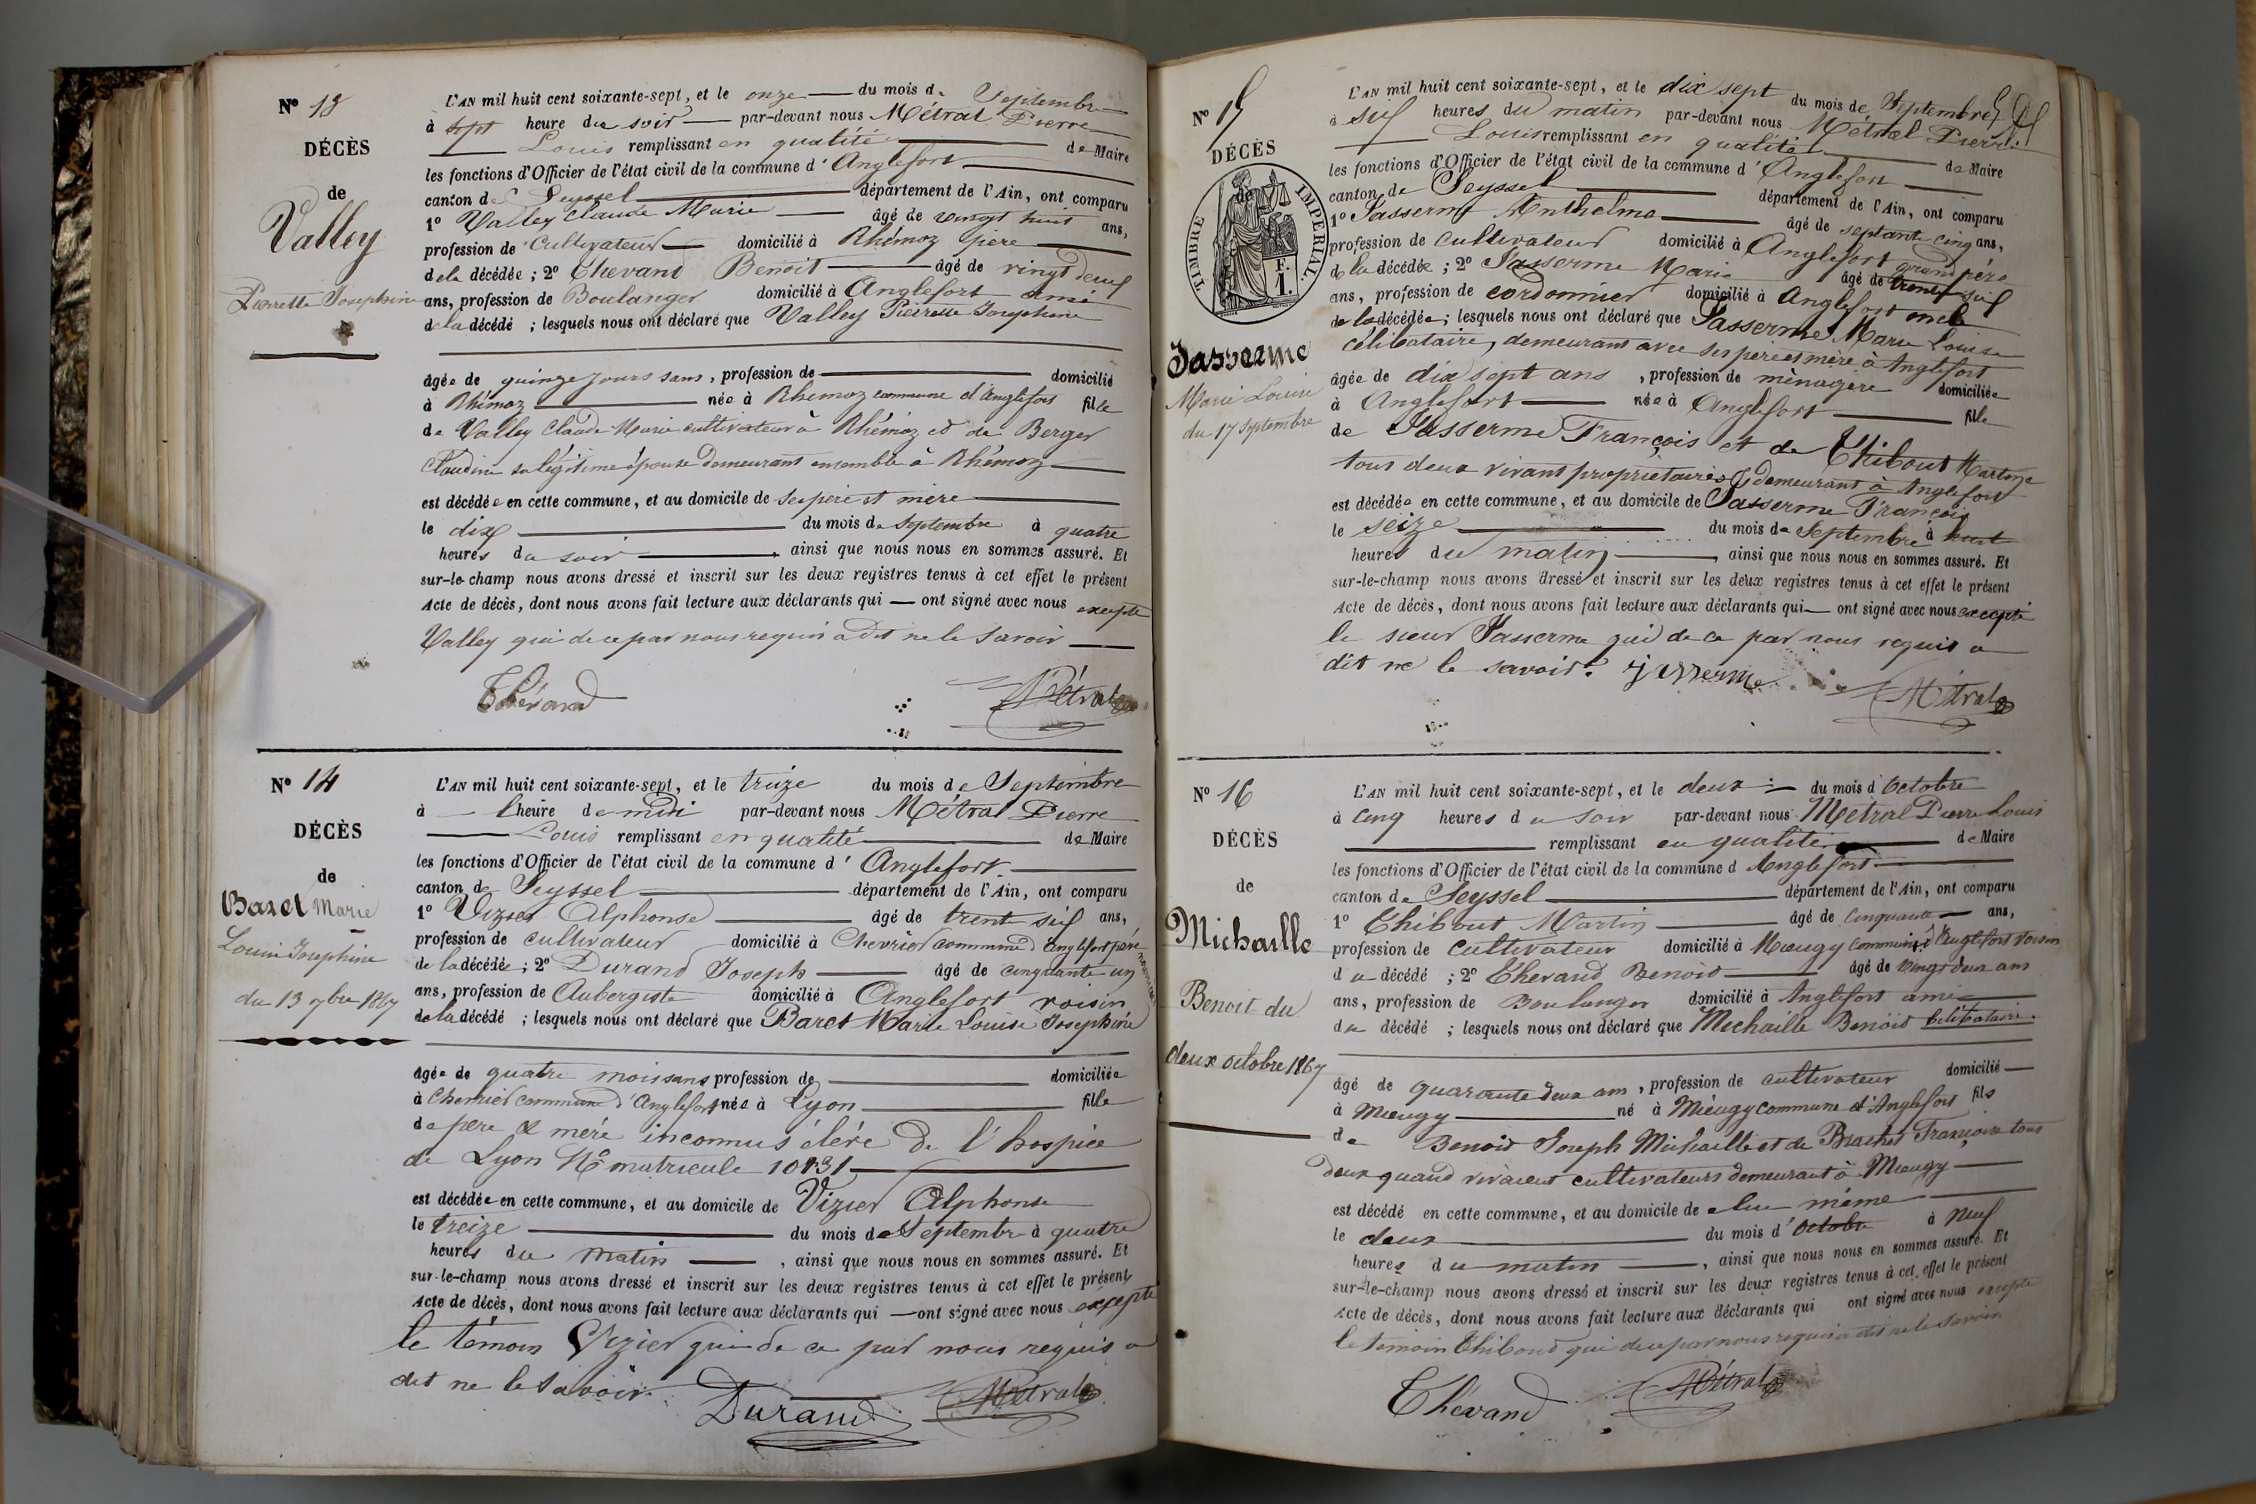 N° 13
DÉCÈS
de
Valley
Pierrette Josephine
L'AN mil huit cent soixante-sept, et le onze du mois de Septembre
à sept heure du soir par-devant nous Métral Pierre
Louis remplissant en qualité de Maire
les fonctions d'Officier de l'état civil de la commune d'Anglefort
canton de Seyssel département de l'Ain, ont comparu
1° Valley Claude Marie âgé de vingt huit ans,
profession de Cultivateur domicilié à Rhémoz père
de la décédée ; 2° Chevand Benoit âgé de vingt deux
ans, profession de Boulanger domicilié à Anglefort ami
de la décédé ; lesquels nous ont déclaré que Valley Pierrette Josephine
âgée de quinze jours sans, profession de domicilié
à Rhémoz née à Rhemoz commune d'Anglefort fille
de Valley Claude Marie cultivateur à Rhémoz et de Berger
Claudine sa légitime épouse demeurant ensemble à Rhémoz
est décédée en cette commune, et au domicile de ses père et mère
le dix du mois de Septembre à quatre
heures du soir ainsi que nous nous en sommes assuré. Et
sur-le-champ nous avons dressé et inscrit sur les deux registres tenus à cet effet le présent
Acte de décès, dont nous avons fait lecture aux déclarants qui ont signé avec nous excepté
Valley qui de ce par nous requis a dit ne le savoir
Chévand Métral
N° 14
DÉCÈS
de
Baret Marie
Louise Josephine
du 13 7bre 1867
L'AN mil huit cent soixante-sept, et le treize du mois de Septembre
à l'heure de midi par-devant nous Métral Pierre
Louis remplissant en qualité de Maire
les fonctions d'Officier de l'état civil de la commune d'Anglefort.
canton de Seyssel département de l'Ain, ont comparu
1° Vizier Alphonse âgé de trente six ans,
profession de cultivateur domicilié à Chevrier commune d'Anglefort père
de la décédée ; 2° Durand Joseph âgé de cinquante un
ans, profession de Aubergiste domicilié à Anglefort voisin
de la décédé ; lesquels nous ont déclaré que Baret Marie Louise Josephine
âgée de quatre mois sans profession de domiciliée
à commune d'Anglefort née à Lyon fille
de père & mère inconnus élève De l'hospice
de Lyon N° matricule 10131
est décédée en cette commune, et au domicile de Vizier Alphonse
le treize du mois de Septembre à quatre
heures du matin , ainsi que nous nous en sommes assuré. Et
sur-le-champ nous avons dressé et inscrit sur les deux registres tenus à cet effet le présent
Acte de décès, dont nous avons fait lecture aux déclarants qui ont signé avec nous excepté
le témoin Vizier qui de ce par nous requis a
dit ne le savoir.
Durand Métral
N° 15
DÉCÈS
de
TIMBRE IMPÉRIAL.
1 F.
Jasserme
Marie Louise
du 17 Septembre
L'AN mil huit cent soixante-sept, et le dix sept du mois de Septembre
à six heures du matin par-devant nous Métral Pierre
Louis remplissant en qualité de Maire
les fonctions d'Officier de l'état civil de la commune d'Anglefort
canton de Seyssel département de l'Ain, ont comparu
1° Jasserme Anthelme âgé de septante cinq ans,
profession de cultivateur domicilié à Anglefort grand père
de la décédée ; 2° Jasserme Marie âgé de trente six
ans, profession de cordonnier domicilié à Anglefort oncle
de la décédée ; lesquels nous ont déclaré que Jasserme Marie Louise
célibataire, demeurant avec ses père et mère à Anglefort
âgée de dix sept ans , profession de ménagère domiciliée
à Anglefort née à Anglefort fille
de Jasserme François et de Thibout
tous deux vivant propriétaires demeurant à Anglefort
est décédée en cette commune, et au domicile de Jasserme François
le seize du mois de Septembre à huit
heures du matin ainsi que nous nous en sommes assuré. Et
sur-le-champ nous avons dressé et inscrit sur les deux registres tenus à cet effet le présent
Acte de décès, dont nous avons fait lecture aux déclarants qui ont signé avec nous excepté
le sieur Jasserme qui de ce par nous requis a
dit ne le savoir. jasserme
Métral
N° 16
DÉCÈS
de
Michaille
Benoit du
deux octobre 1867
L'AN mil huit cent soixante-sept, et le deux du mois d'Octobre
à cinq heures du soir par-devant nous Metral Pierre Louis
remplissant en qualité de Maire
les fonctions d'Officier de l'état civil de la commune d Anglefort
canton de Seyssel département de l'Ain, ont comparu
1° Thibout Martin âgé de Cinquante ans,
profession de cultivateur domicilié à Mieugy commune d'Anglefort voisin
du décédé ; 2° Chevand Benoit âgé de vingt deux ans
ans, profession de Boulanger domicilié à Anglefort ami
du décédé ; lesquels nous ont déclaré que Michaille Benoit Célibataire.
âgé de quarante deux ans , profession de cultivateur domicilié
à Mieugy né à Mieugy commune d'Anglefort fils
de Benoit Joseph Michaille et de Brachet Françoise tous
deux quand vivaient cultivateurs demeurant à Mieugy
est décédé en cette commune, et au domicile de lui même
le deux du mois d'Octobre à neuf
heures du matin , ainsi que nous nous en sommes assuré. Et
sur-le-champ nous avons dressé et inscrit sur les deux registres tenus à cet effet le présent
Acte de décès, dont nous avons fait lecture aux déclarants qui ont signé avec nous excepté
le temoin Thiboud qui de ce par nous requis a dit ne le savoir
Chévand Métral